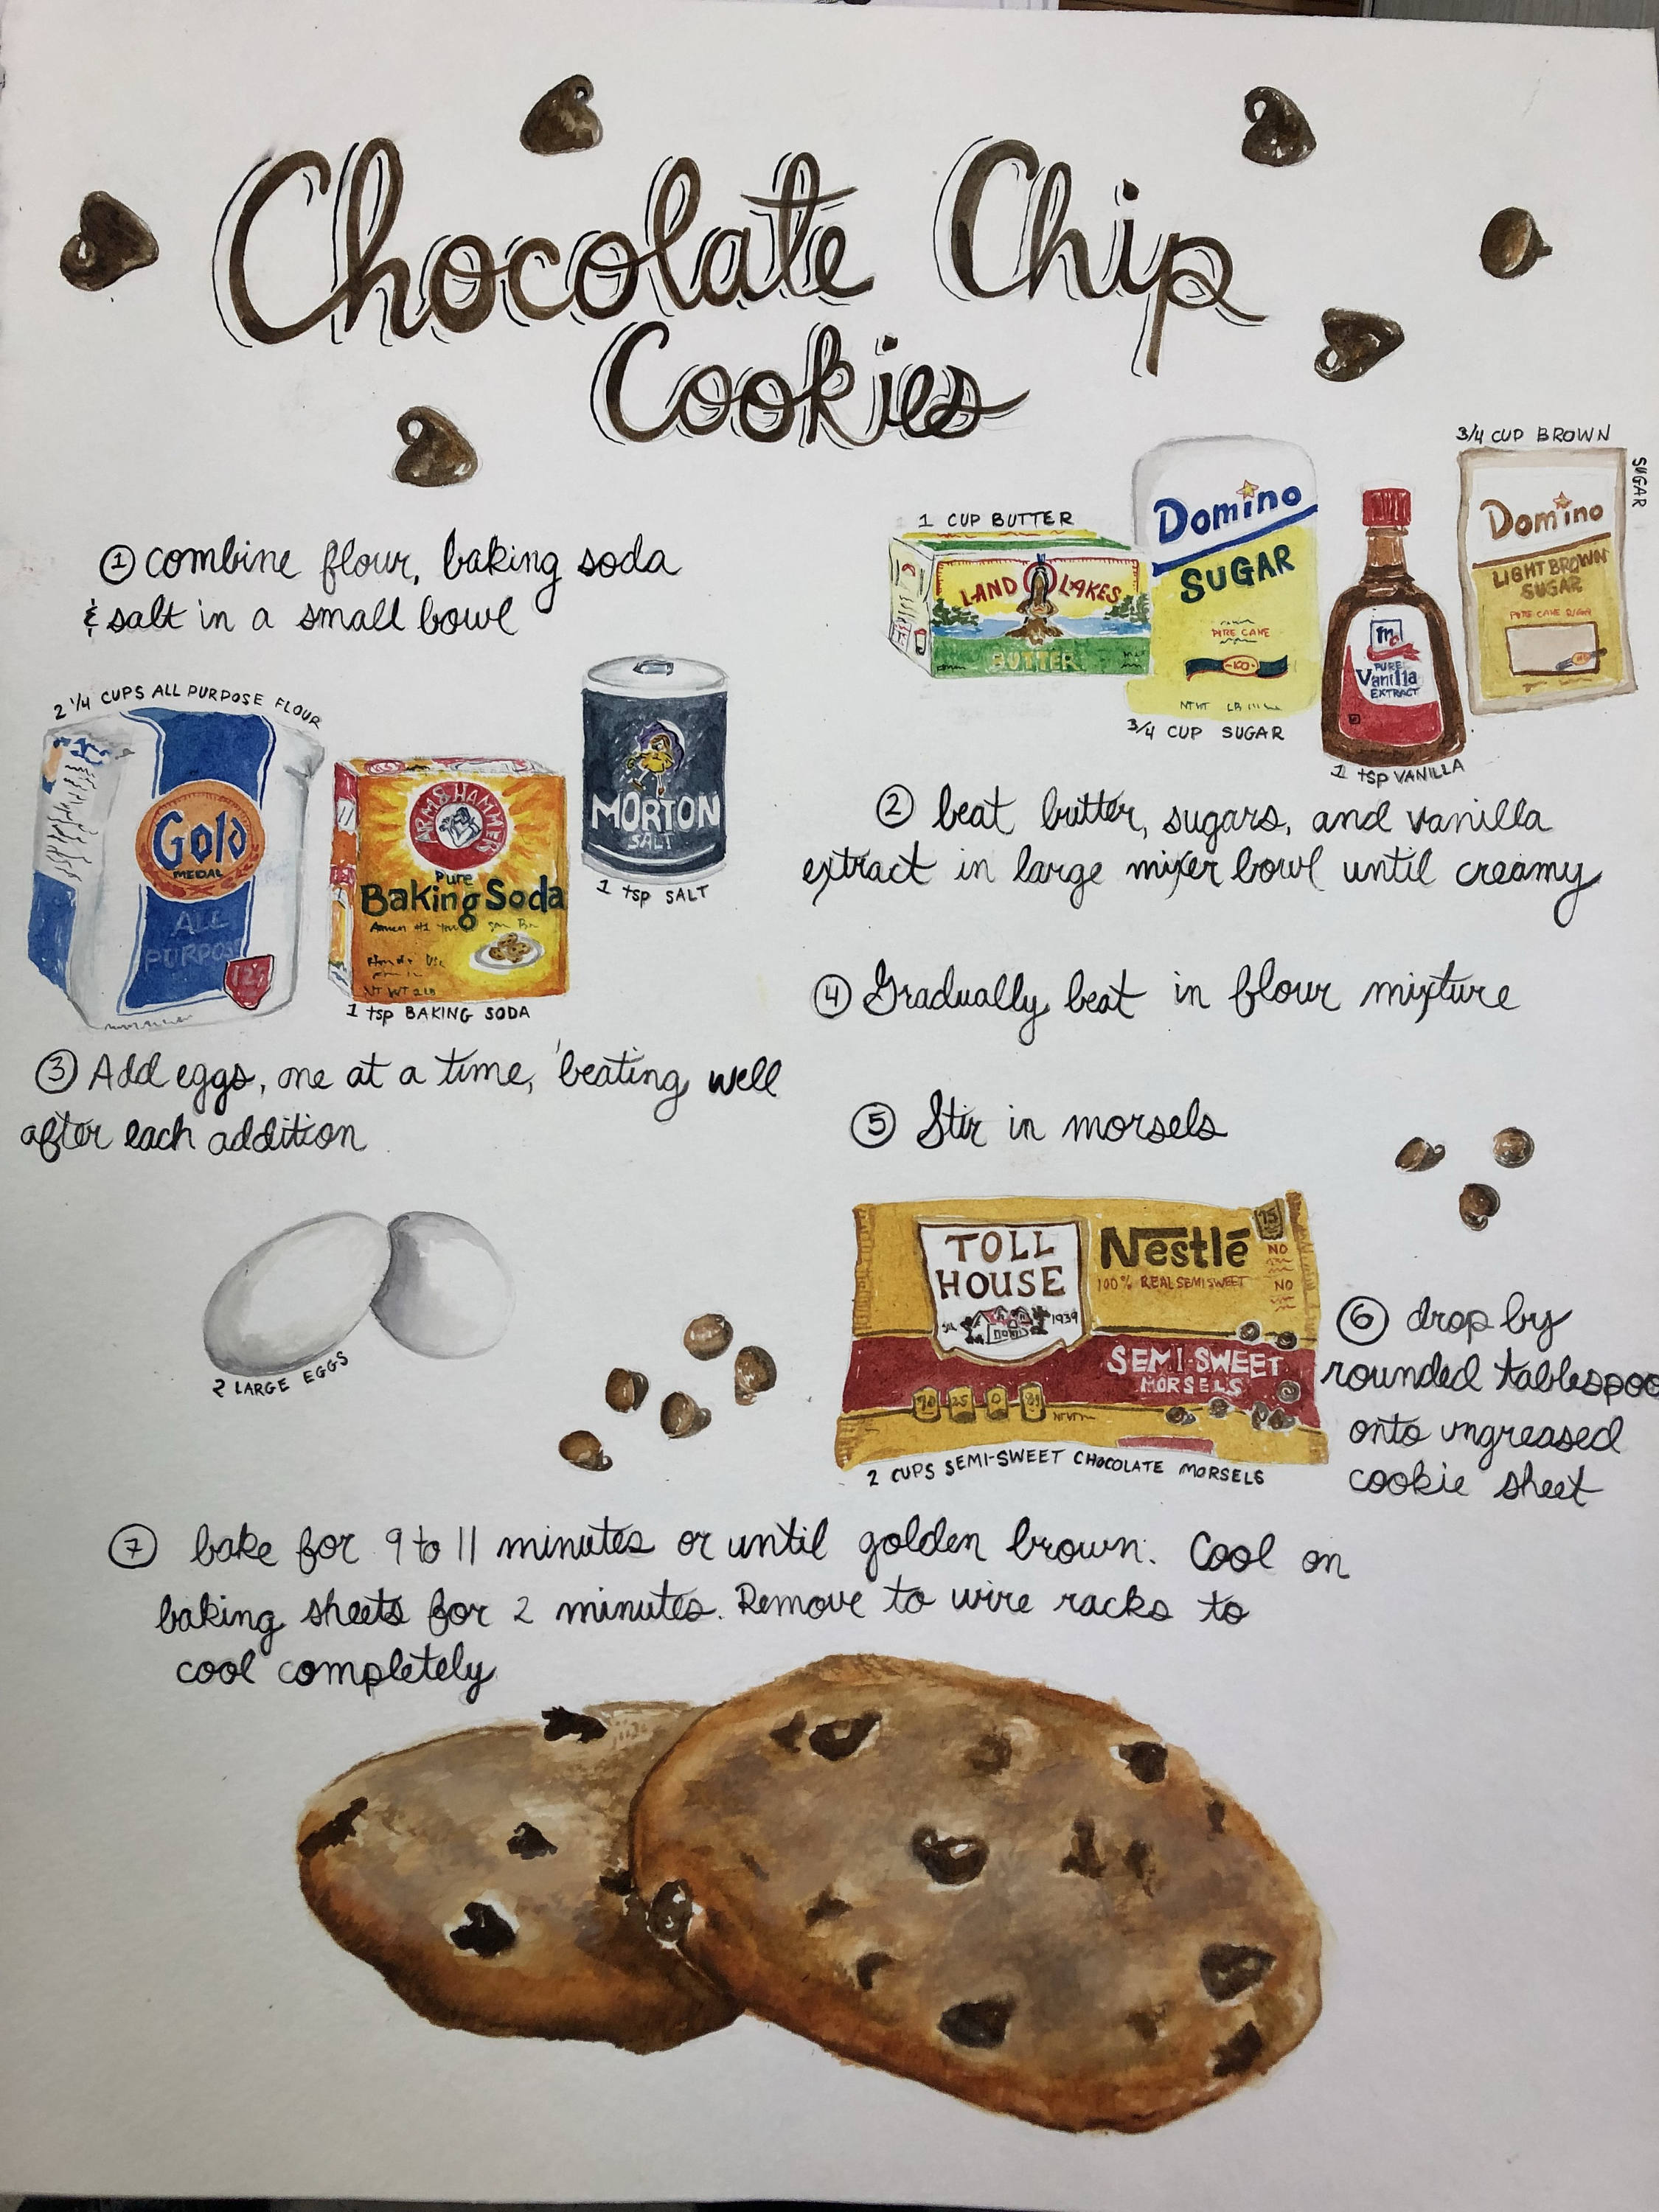 Chocolate Chip
Cookies
① combine flour, baking soda
& salt in a small bowl
2 1/4 CUPS ALL PURPOSE FLOUR
Gold
MEDAL
ALL
PURPOSE
ARM & HAMMER
Pure
Baking Soda
NT WT 2 LB
1 tsp BAKING SODA
MORTON
SALT
1 tsp SALT
1 CUP BUTTER
LAND O LAKES
BUTTER
Domino
SUGAR
PURE CANE
3/4 CUP SUGAR
PURE
Vanilla
EXTRACT
1 tsp VANILLA
3/4 CUP BROWN
SUGAR
Domino
LIGHT BROWN
SUGAR
PURE CANE SUGAR
② beat butter, sugars, and vanilla
extract in large mixer bowl until creamy
③ Add eggs, one at a time, beating well
after each addition
2 LARGE EGGS
④ Gradually beat in flour mixture
⑤ Stir in morsels
TOLL
HOUSE
1939
Nestlé
100% REAL SEMI SWEET
15
NO
NO
SEMI SWEET
MORSELS
70 25 0 8g
2 CUPS SEMI-SWEET CHOCOLATE MORSELS
⑥ drop by
rounded tablespoo
onto ungreased
cookie sheet
⑦ bake for 9 to 11 minutes or until golden brown. Cool on
baking sheets for 2 minutes. Remove to wire racks to
cool completely